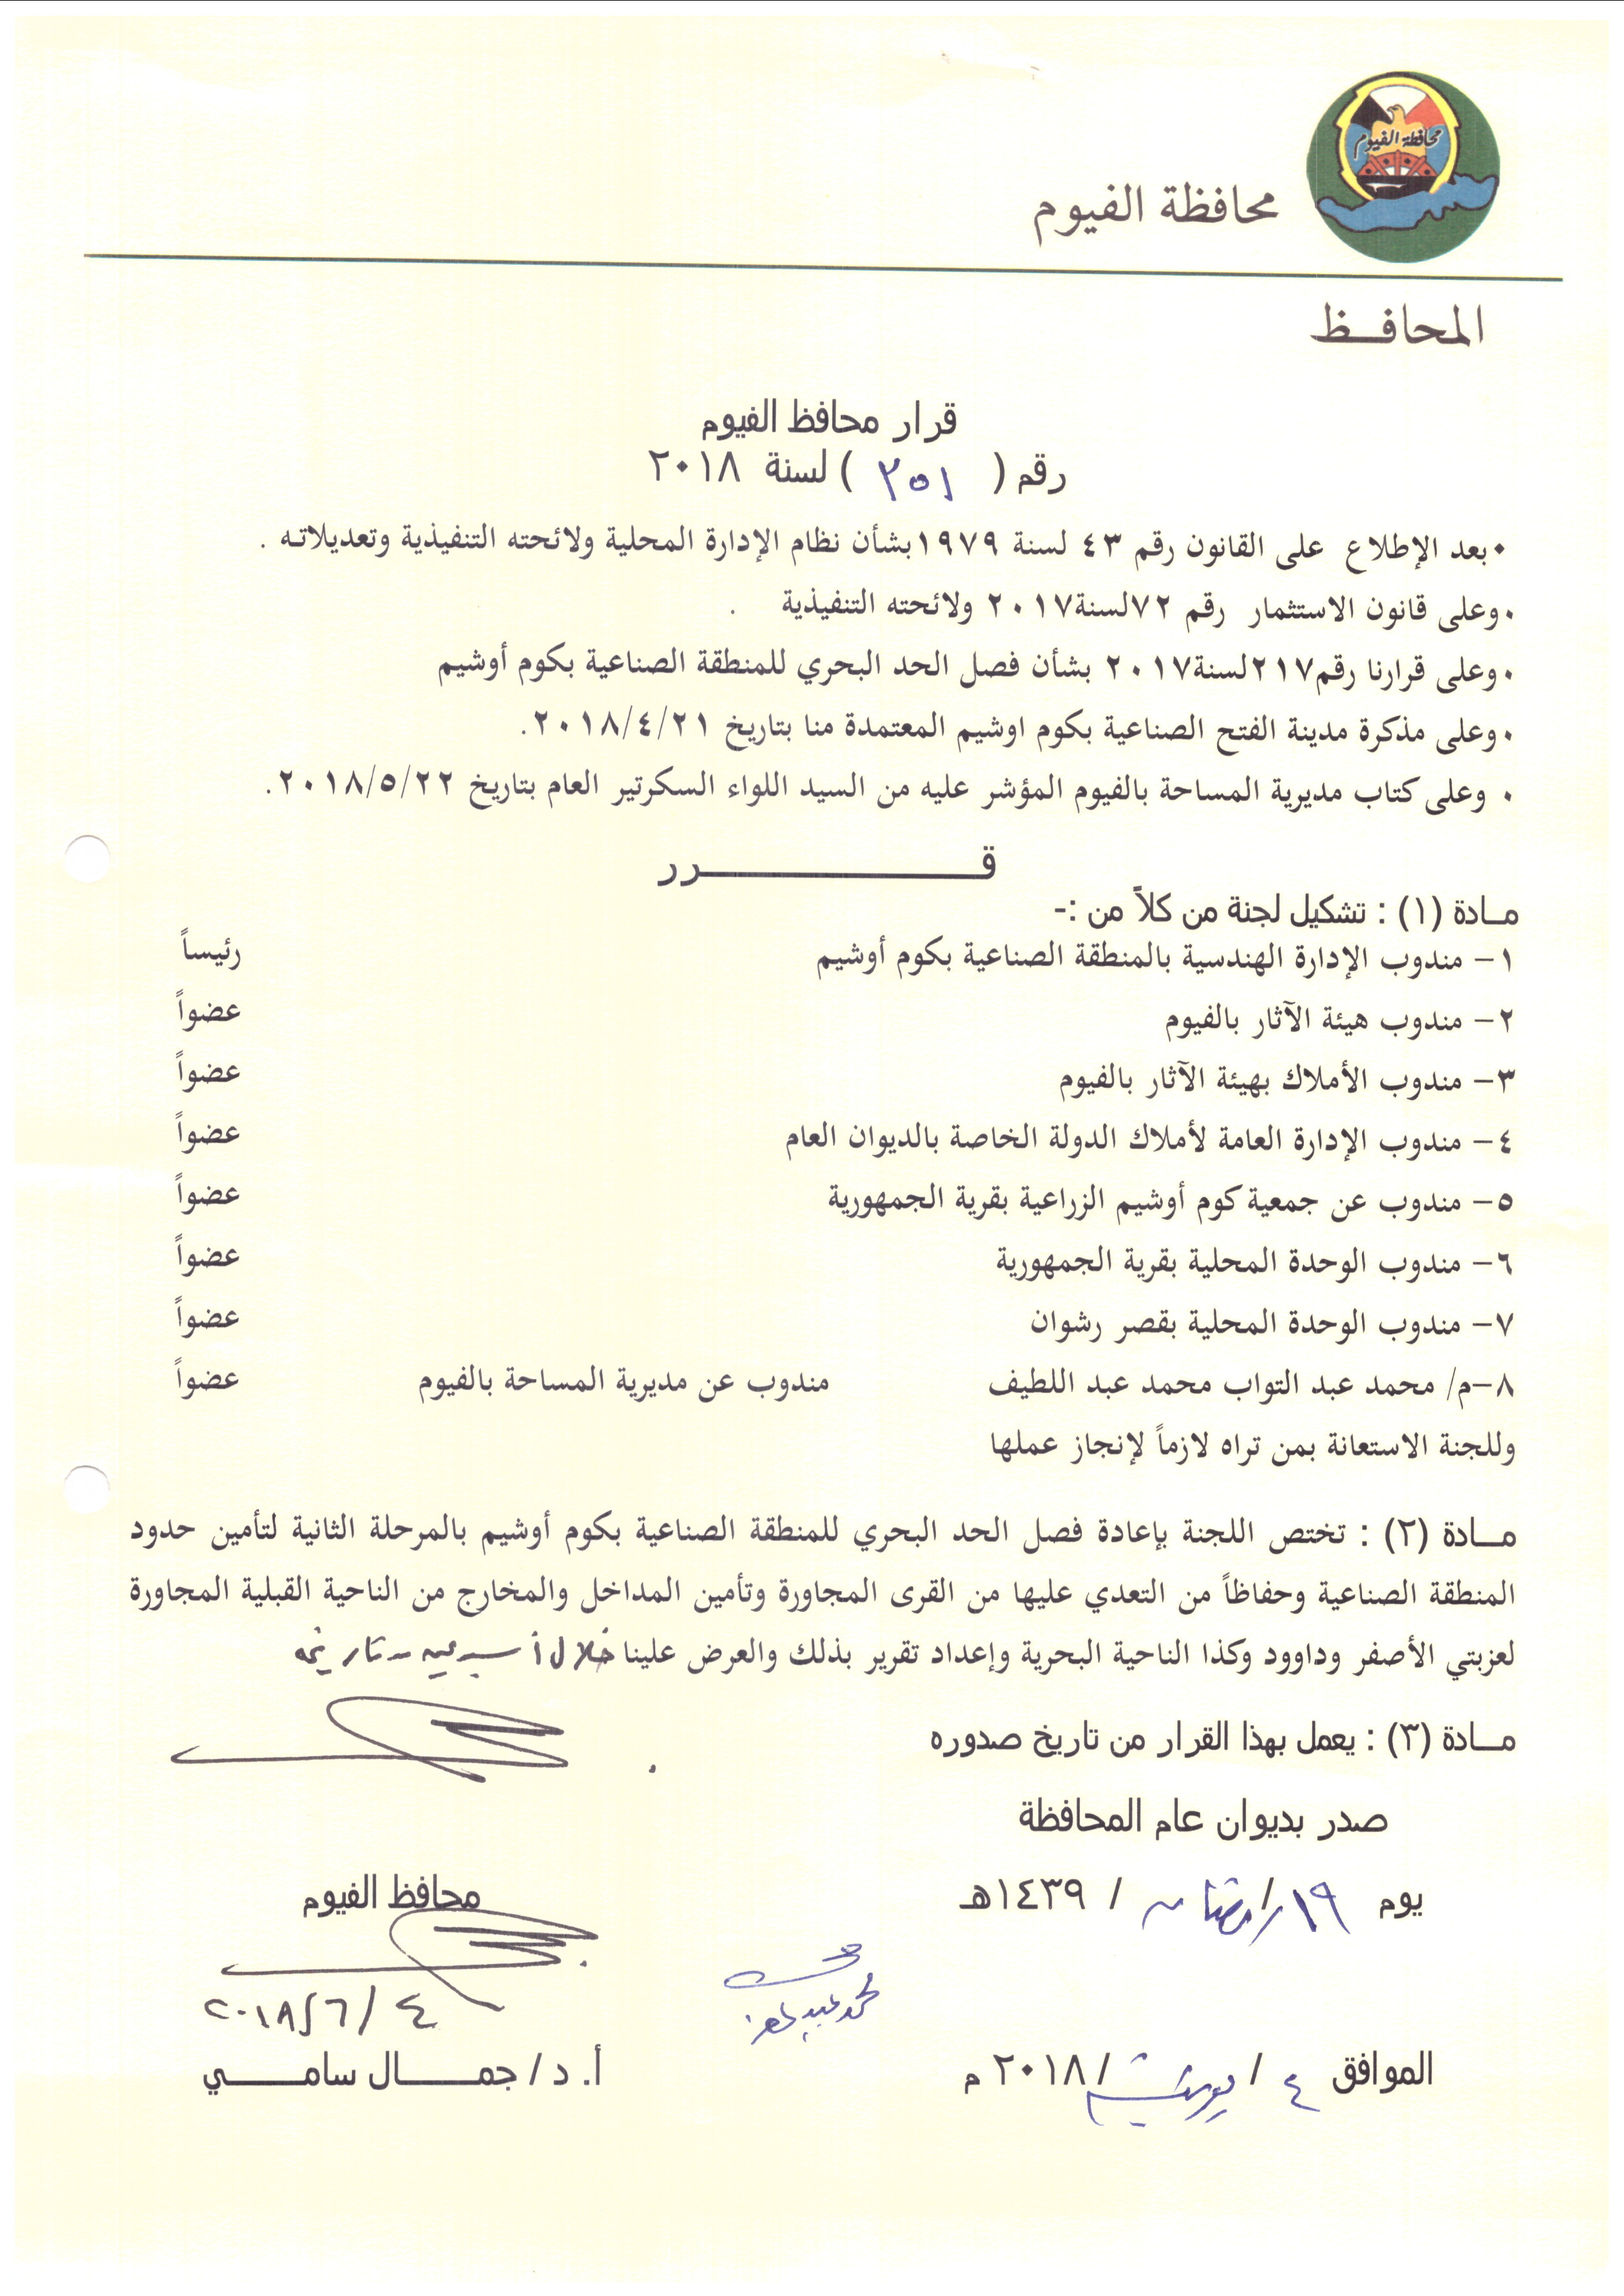 محافظة الفيوم
محافظة الفيوم
المحافـــظ
قرار محافظ الفيوم
رقم ( ٣٥١ ) لسنة ٢٠١٨
• بعد الإطلاع على القانون رقم ٤٣ لسنة ١٩٧٩ بشأن نظام الإدارة المحلية ولائحته التنفيذية وتعديلاته .
• وعلى قانون الاستثمار رقم ٧٢ لسنة ٢٠١٧ ولائحته التنفيذية .
• وعلى قرارنا رقم ٢١٧ لسنة ٢٠١٧ بشأن فصل الحد البحري للمنطقة الصناعية بكوم أوشيم
• وعلى مذكرة مدينة الفتح الصناعية بكوم اوشيم المعتمدة منا بتاريخ ٢٠١٨/٤/٢١.
• وعلى كتاب مديرية المساحة بالفيوم المؤشر عليه من السيد اللواء السكرتير العام بتاريخ ٢٠١٨/٥/٢٢.
قــــــــــــــــرر
مــادة (١) : تشكيل لجنة من كلاً من :-
١- مندوب الإدارة الهندسية بالمنطقة الصناعية بكوم أوشيم رئيساً
٢- مندوب هيئة الآثار بالفيوم عضواً
٣- مندوب الأملاك بهيئة الآثار بالفيوم عضواً
٤- مندوب الإدارة العامة لأملاك الدولة الخاصة بالديوان العام عضواً
٥- مندوب عن جمعية كوم أوشيم الزراعية بقرية الجمهورية عضواً
٦- مندوب الوحدة المحلية بقرية الجمهورية عضواً
٧- مندوب الوحدة المحلية بقصر رشوان عضواً
٨-م/ محمد عبد التواب محمد عبد اللطيف مندوب عن مديرية المساحة بالفيوم عضواً
وللجنة الاستعانة بمن تراه لازماً لإنجاز عملها
مــادة (٢) : تختص اللجنة بإعادة فصل الحد البحري للمنطقة الصناعية بكوم أوشيم بالمرحلة الثانية لتأمين حدود
المنطقة الصناعية وحفاظاً من التعدي عليها من القرى المجاورة وتأمين المداخل والمخارج من الناحية القبلية المجاورة
لعزبتي الأصفر وداوود وكذا الناحية البحرية وإعداد تقرير بذلك والعرض علينا خلال أسبوعين من تاريخه
مــادة (٣) : يعمل بهذا القرار من تاريخ صدوره
صدر بديوان عام المحافظة
يوم ١٩ / رمضان / ١٤٣٩هـ
محافظ الفيوم
٢٠١٨/٦/٤
الموافق ٤ / يونيه / ٢٠١٨ م
أ. د/ جمـــــال سامـــــي